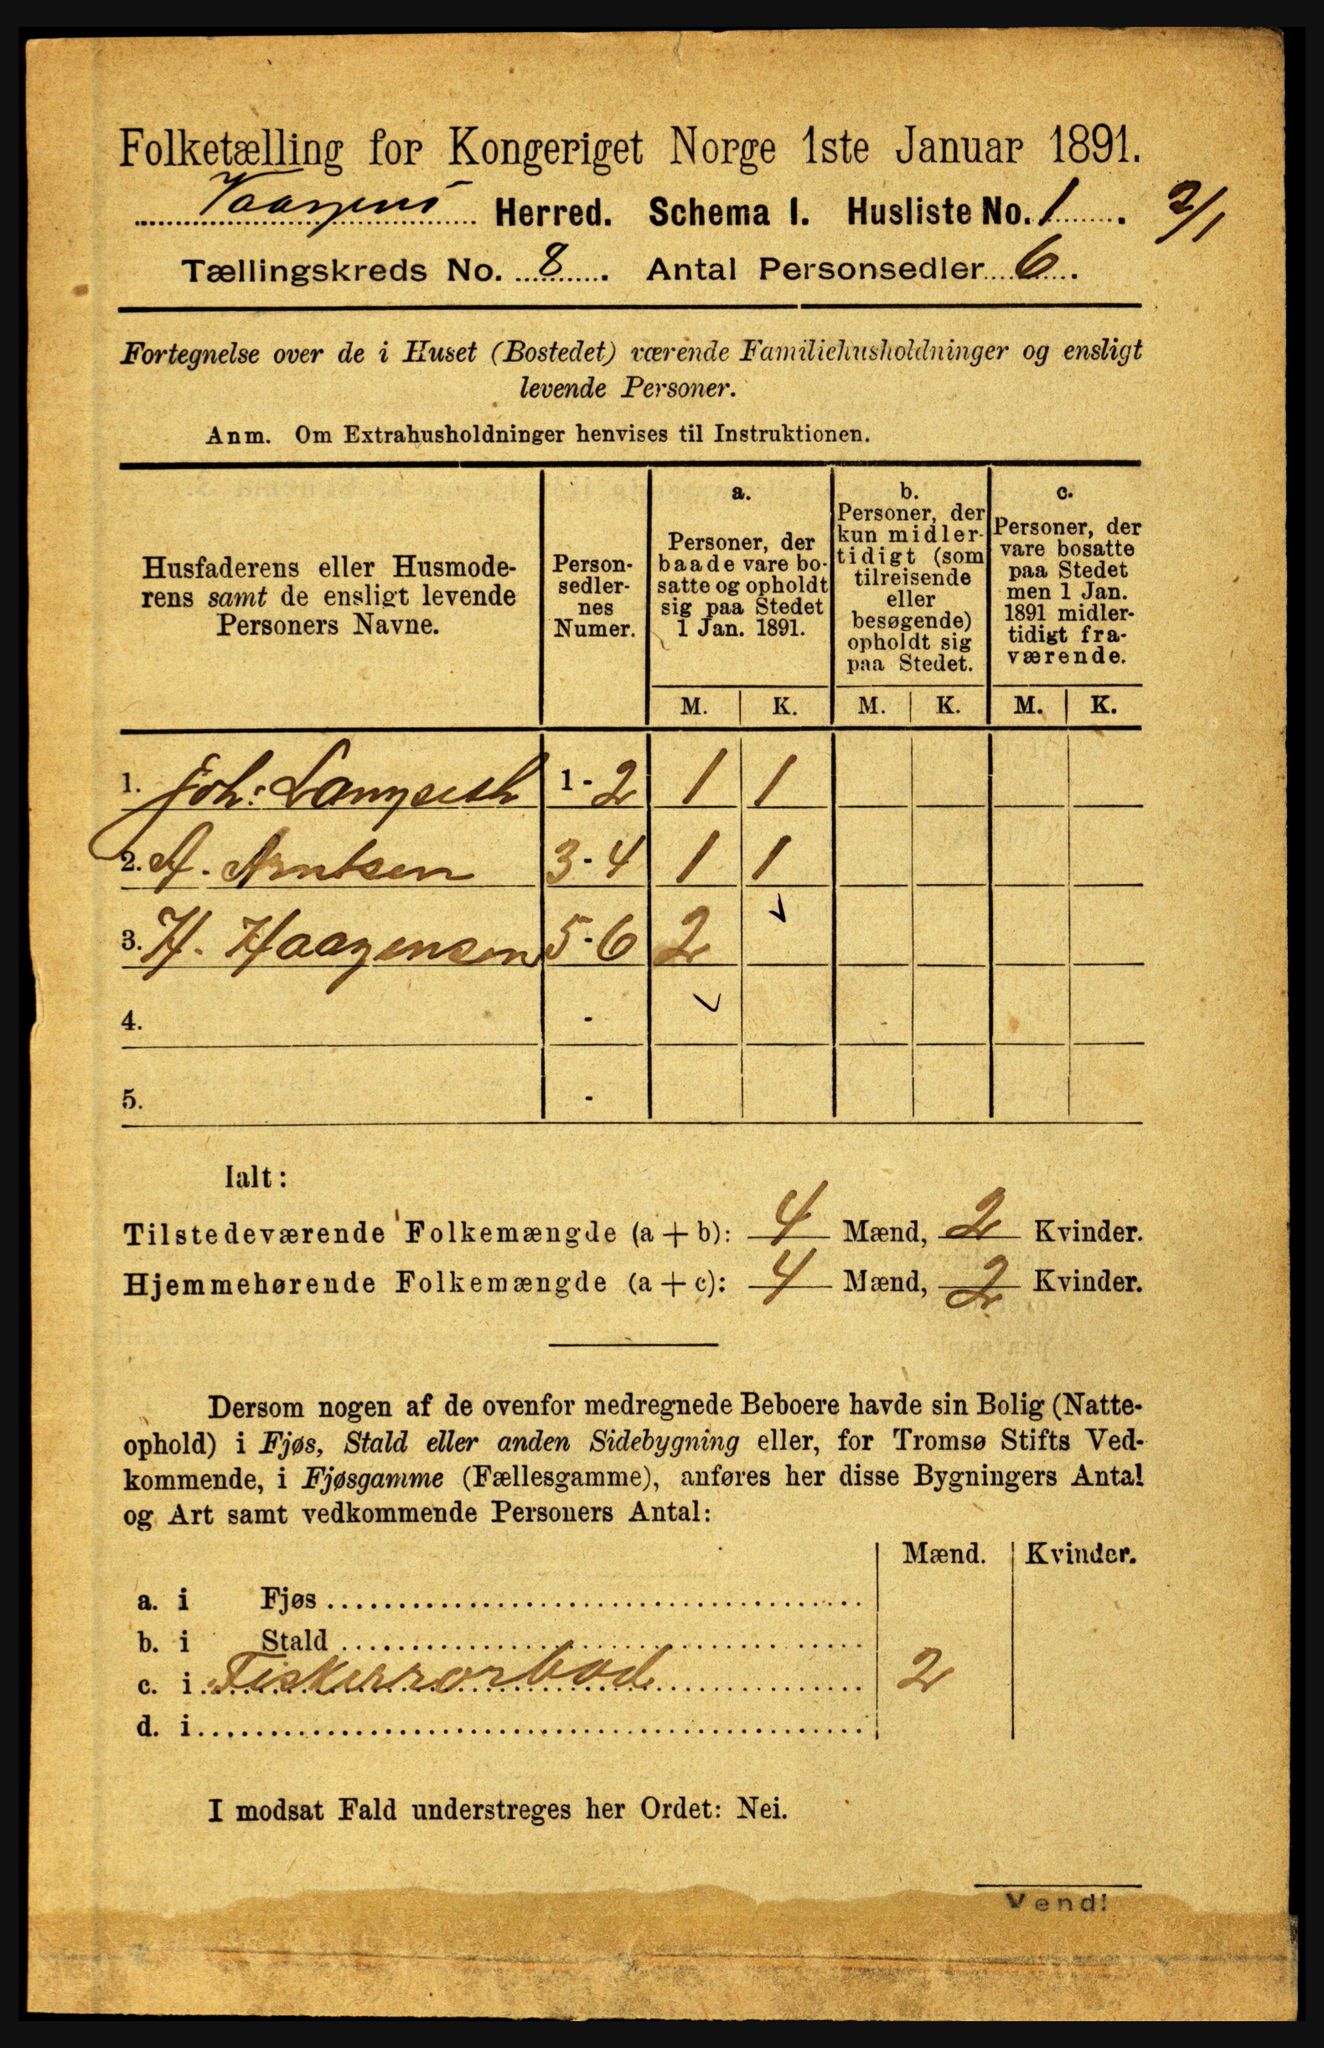 Folketælling for Kongeriget Norge 1ste Januar 1891.
Vaagens Herred. Schema I. Husliste No. 1. 2/1
Tællingskreds No. 8. Antal Personsedler 6.
Fortegnelse over de i Huset (Bostedet) værende Familiehusholdninger og ensligt
levende Personer.
Anm. Om Extrahusholdninger henvises til Instruktionen.
Husfaderens eller Husmode-
rens samt de ensligt levende
Personers Navne.
Person-
sedler-
nes
Numer.
a.
Personer, der
baade vare bo-
satte og opholdt
sig paa Stedet
1 Jan. 1891.
b.
Personer, der
kun midler-
tidigt (som
tilreisende
eller
besøgende)
opholdt sig
paa Stedet.
c.
Personer, der
vare bosatte
paa Stedet
men 1 Jan.
1891 midler-
tidigt fra-
værende.
M. K. M. K. M. K.
1. Joh: Langseth 1 - 2 1 1
2. A. Arntsen 3 - 4 1 1
3. H. Haagensen 5 - 6 2
4. -
5. -
Ialt:
Tilstedeværende Folkemængde (a + b): 4 Mænd, 2 Kvinder.
Hjemmehørende Folkemængde (a + c): 4 Mænd, 2 Kvinder.
Dersom nogen af de ovenfor medregnede Beboere havde sin Bolig (Natte-
ophold) i Fjøs, Stald eller anden Sidebygning eller, for Tromsø Stifts Ved-
kommende, i Fjøsgamme (Fællesgamme), anføres her disse Bygningers Antal
og Art samt vedkommende Personers Antal:
Mænd. Kvinder.
a. i Fjøs
b. i Stald
c. i Fiskerrorbod 2
d. i
I modsat Fald understreges her Ordet: Nei.
Vend!